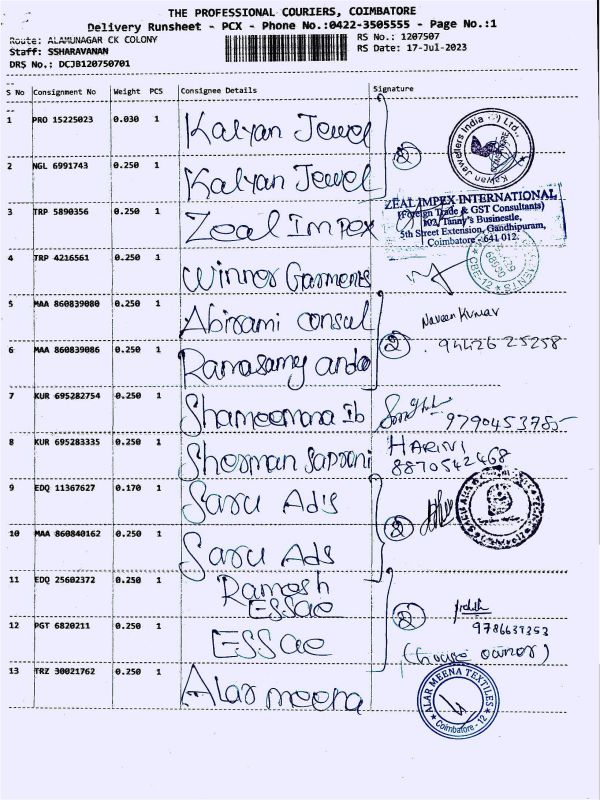 THE PROFESSIONAL COURIERS, COIMBATORE
Delivery Runsheet - PCX - Phone No.:0422-3505555 - Page No.:1
Route: ALAMUNAGAR CK COLONY
RS No.: 1207507
Staff: SSHARAVANAN
RS Date: 17-Jul-2023
DRS No.: DCJB120750701
S No Consignment No Weight PCS Consignee Details Signature
1 PRO 15225023 0.030 1 Kalyan Jewel
2 NGL 6991743 0.250 1 Kalyan Jewel
2
Kalyan Jewellers India Ltd.,
3 TRP 5890356 0.250 1 Zeal Impex
ZEAL IMPEX INTERNATIONAL
(Foreign Trade & GST Consultants)
102, Tanny's Businestle,
5th Street Extension, Gandhipuram,
Coimbatore - 641 012.
4 TRP 4216561 0.250 1 Winner Garments
CBE-12
5 MAA 860839080 0.250 1 Abirami consul
6 MAA 860839086 0.250 1 Ramasamy and co
2
Naveen Kumar
94426 25258
7 KUR 695282754 0.250 1 Shameemana Ib
9790453785
8 KUR 695283335 0.250 1 Sherman Saprani
HARINI
8870542468
9 EDQ 11367627 0.170 1 Saru Ads
10 MAA 860840162 0.250 1 Saru Ads
2
11 EDQ 25602372 0.250 1 Ramesh
ESSae
12 PGT 6820211 0.250 1 ESSae
2
9786639353
(house owner)
13 TRZ 30021762 0.250 1 Alar meena
ALAR MEENA TEXTILES
Coimbatore - 12